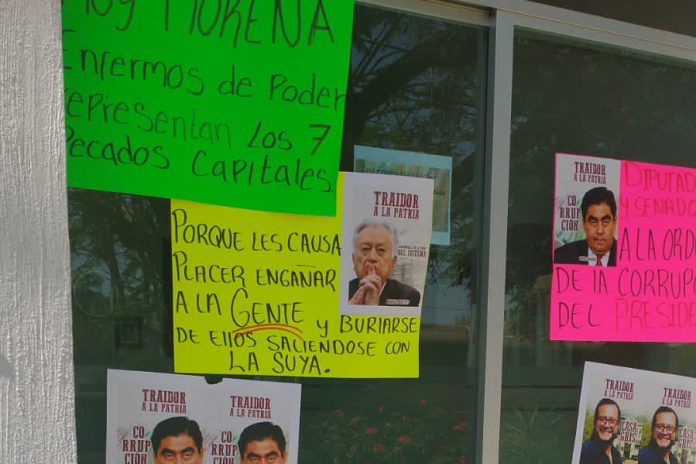 MORENA
Enfermos de Poder
representan los 7
Pecados Capitales
PORQUE LES CAUSA
PLACER ENGAÑAR
A LA GENTE
Y BURLARSE
DE EllOS SALIÉNDOSE CON
LA SUYA.
TRAIDOR
A LA PATRIA
DEL SISTEMA
TRAIDOR
A LA PATRIA
CO-
RRUP
CIÓN
DIPUTAD
Y SENADO
A LA ORDE
DE LA CORRUP
DEL PRESID
TRAIDOR
A LA PATRIA
CO-
RRUP
TRAIDOR
A LA PATRIA
CO-
RRUP
TRAIDOR
A LA PATRIA
CASA
GRIS
TRAIDOR
A LA PATRIA
CASA
GRIS